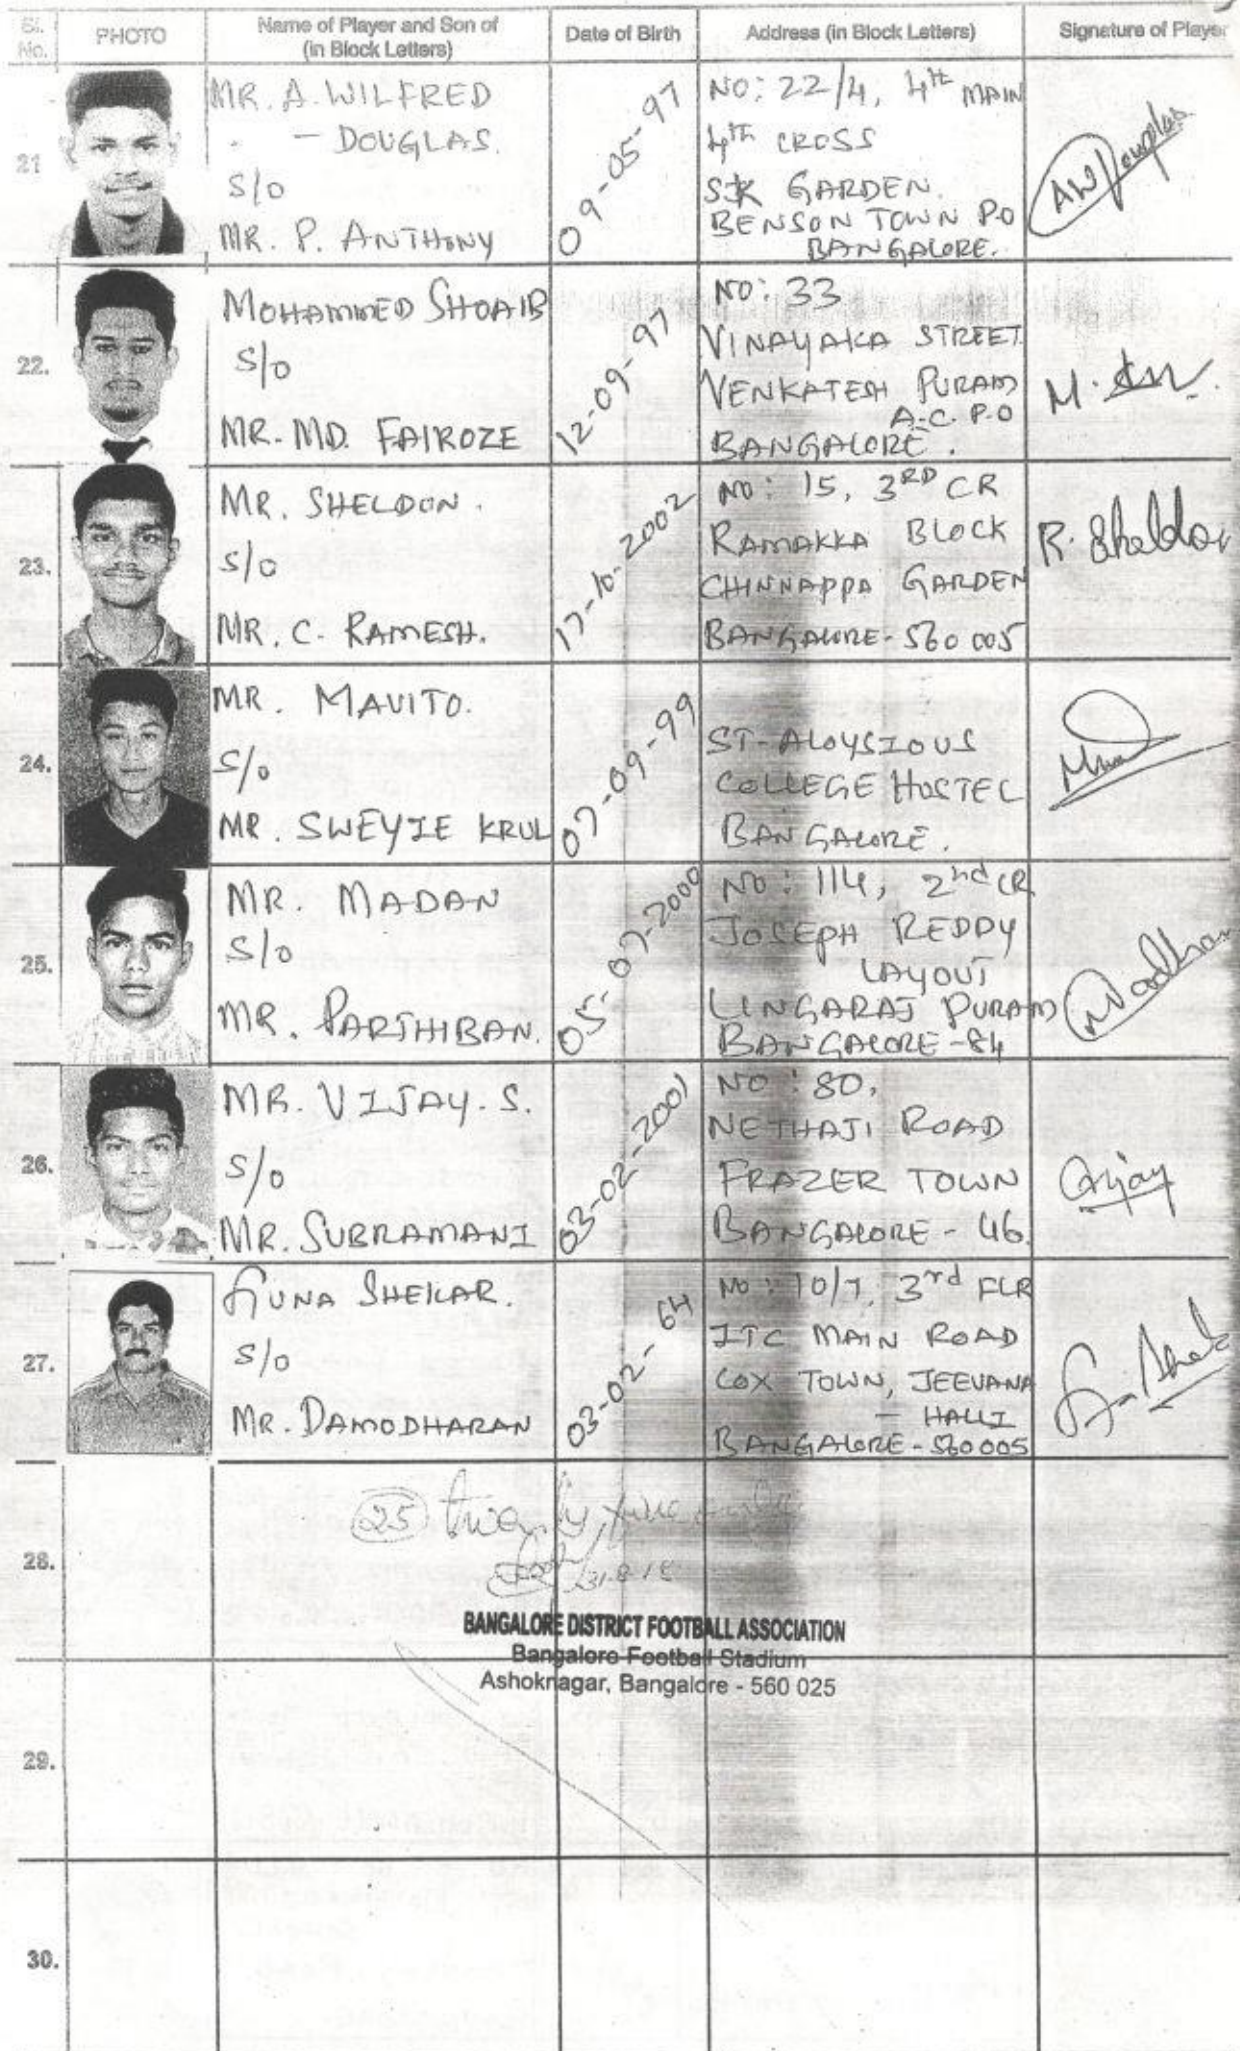 Sl. No. PHOTO Name of Player and Son of (in Block Letters) Date of Birth Address (in Block Letters) Signature of Player
21
MR. A. WILFRED
- DOUGLAS.
S/o
MR. P. ANTHONY
09-05-97
NO: 22/4, 4th MAIN
4th CROSS
SK GARDEN.
BENSON TOWN P.O
BANGALORE.
AW Douglas
22.
MOHAMMED SHOAIB
S/o
MR. MD. FAIROZE
12-09-97
NO: 33
VINAYAKA STREET
VENKATESH PURAM
A.C. P.O
BANGALORE.
23.
MR. SHELDON.
S/o
MR. C. RAMESH.
17-10-2002
NO: 15, 3RD CR
RAMAKKA BLOCK
CHINNAPPA GARDEN
BANGALORE-560 005
R. Sheldon
24.
MR. MAVITO.
S/o
MR. SWEYIE KRUL
07-09-99
ST-ALOYSIOUS
COLLEGE HOSTEL
BANGALORE.
25.
MR. MADAN
S/o
MR. PARTHIBAN.
05-07-2000
NO: 114, 2nd CR
JOSEPH REDDY
LAYOUT
LINGARAJ PURAM
BANGALORE-84
26.
MR. VIJAY. S.
S/o
MR. SUBRAMANI
03-02-2001
NO: 80,
NETHAJI ROAD
FRAZER TOWN
BANGALORE - 46.
27.
GUNA SHEKAR.
S/o
MR. DAMODHARAN
03-02-64
NO: 10/7, 3rd FLR
ITC MAIN ROAD
COX TOWN, JEEVANA
- HALLI
BANGALORE-560005
28.
25 twenty five
31.8.18
BANGALORE DISTRICT FOOTBALL ASSOCIATION
Bangalore Football Stadium
Ashoknagar, Bangalore - 560 025
29.
30.